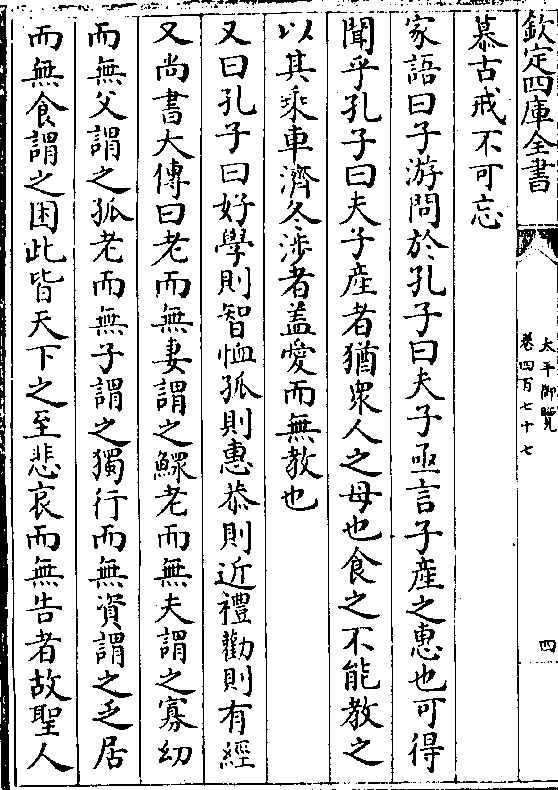 欽定四庫全書
太平御覽
卷四百七十七
四
慕古戒不可忘
家語曰子游問於孔子曰夫子亟言子產之惠也可得
聞乎孔子曰夫子產者猶衆人之母也食之不能教之
以其乘車濟冬涉者蓋愛而無教也
又曰孔子曰好學則智恤孤則惠恭則近禮勸則有經
又尚書大傳曰老而無妻謂之鰥老而無夫謂之寡幼
而無父謂之孤老而無子謂之獨行而無資謂之乏居
而無食謂之困此皆天下之至悲哀而無告者故聖人